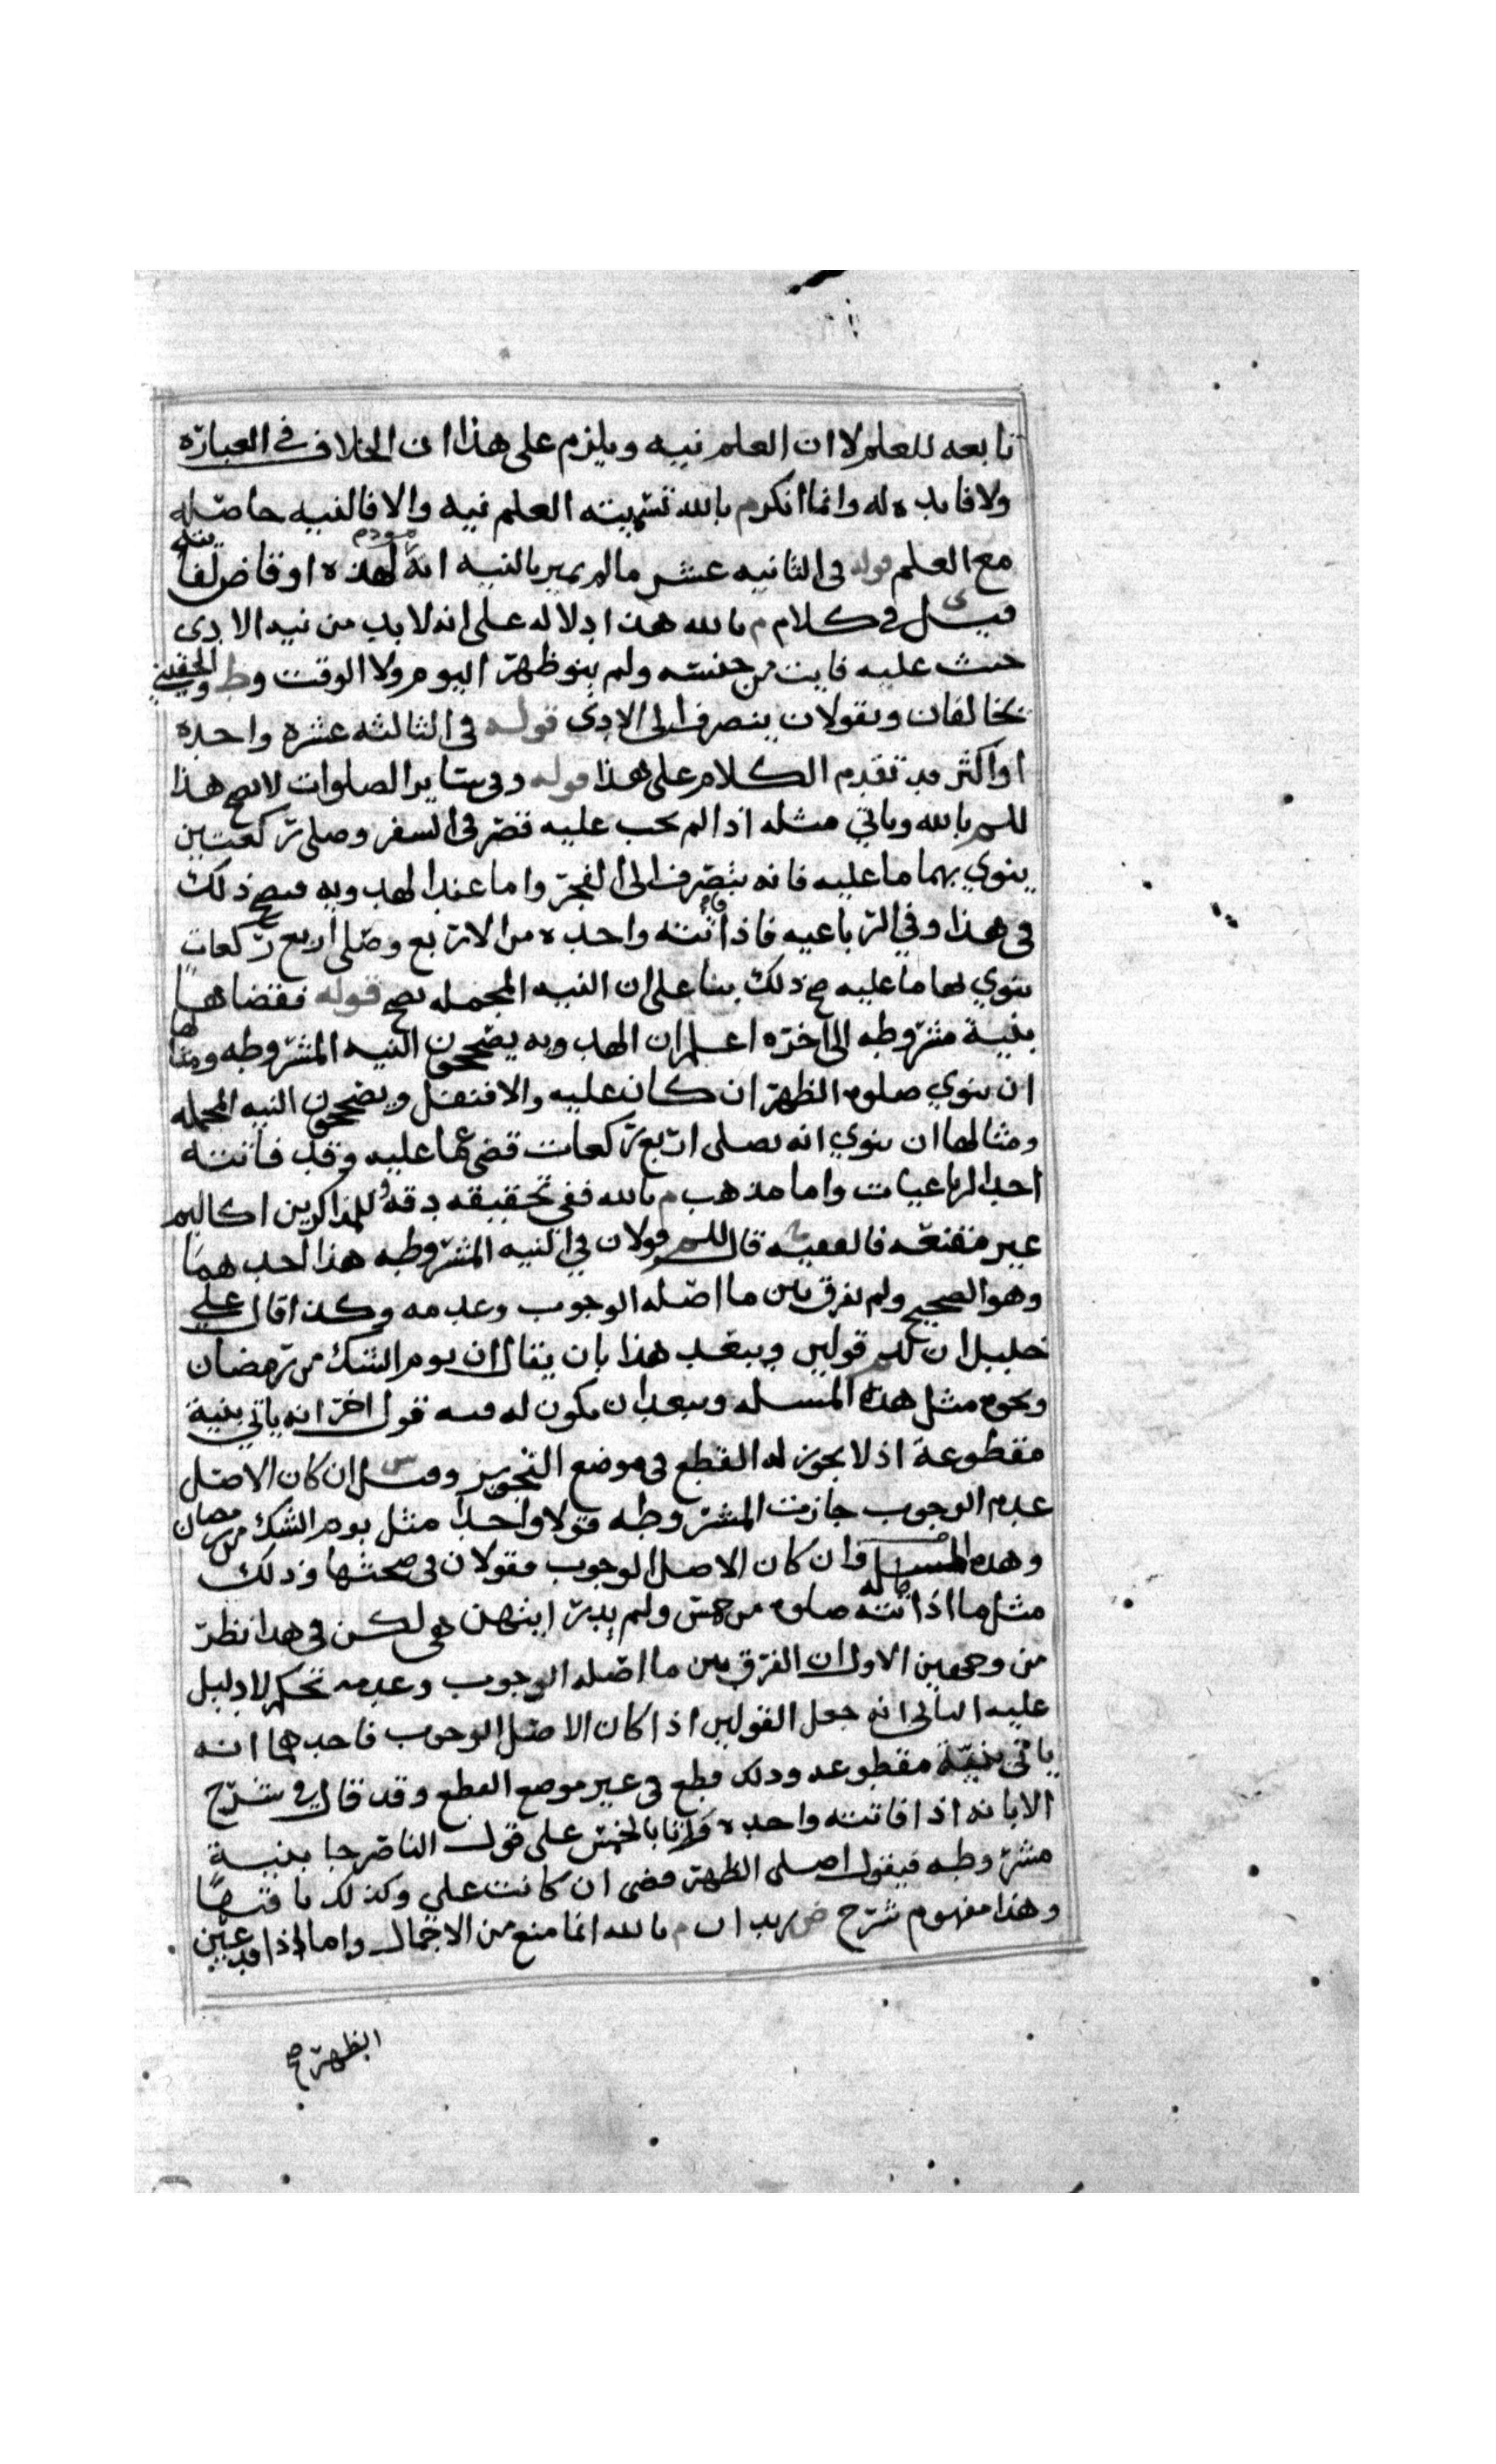 تابعه للعلم لا ان العلم نيه ويلزم على هذا ان الخلاف في العباره
ولا فايده له وانما انكر م بالله تسميته العلم نيه والا فالنيه حاصله
مع العلم قوله في الثانيه عشر ما لم يميز بالنيه انه لهذه او قاض لفايته
قيل في كلام م بالله هذا دلاله على انه لا بد من نيه الادى
حيث عليه فايت من جنسه ولم ينو ظهر اليوم ولا الوقت وط والحقيني
يخالفان ويقولان ينصرف الى الادى قوله في الثالثه عشره واحده
او اكثر قد تقدم الكلام على هذا قوله وفي ساير الصلوات لا يصح هذا
للم بالله وياتي مثله اذا لم يجب عليه قصر في السفر وصلى ركعتين
ينوي بهما ما عليه فانه ينصرف الى الفجر واما عند الهدويه فيصح ذلك
في هذا وفي الرباعيه فاذا فاتته واحده من الاربع وصلى اربع ركعات
ينوي لها ما عليه صح ذلك بنا على ان النيه المجمله تصح قوله فقضاها
بنية مشروطه الى اخره اعلم ان الهدويه يصححون النيه المشروطه ومثالها
ان ينوي صلوه الظهر ان كان عليه والا فنفل ويصححون النيه المجمله
ومثالها ان ينوي انه يصلى اربع ركعات قضى عما عليه وقد فاتته
احدا الرباعيات واما مذهب م بالله ففي تحقيقه دقه وللمذاكرين اكاليم
غير مقنعه فالفقيه قال للم قولان في النيه المشروطه هذا احدهما
وهو الصحيح ولم يفرق بين ما اصله الوجوب وعدمه وكذا قال علي
خليل ان للم قولين ويبعد هذا بان يقال ان يوم الشك من رمضان
ونحوه مثل هذه المسله ويبعد ان يكون له فيه قول اخر انه ياتي بنية
مقطوعة اذ لا يجوز له القطع في موضع التجويز وقيل س ان كان الاصل
عدم الوجوب جازت المشروطه قولا واحدا مثل يوم الشك من رمضان
وهذه المسله وان كان الاصل الوجوب فقولان في صحتها وذلك
مثل ما اذا فاتته صلوه من خمس ولم يدر ايتهن هي لكن في هذا نظر
من وجهين الاول ان الفرق بين ما اصله الوجوب وعدمه تحكم لا دليل
عليه الثاني انه جعل القولين اذا كان الاصل الوجوب فاحدهما انه
ياتي بنية مقطوعه وذلك قطع في غير موضع القطع وقد قال في شرح
الابانه اذا فاتته واحده واتا بالخمس على قول الناصر جا بنية
مشروطه فيقول اصلى الظهر قضى ان كانت علي وكذلك باقيها
وهذا مفهوم شرح ض زيد ان م بالله انما منع من الاجمال واما اذا قد عين
الظهر صح